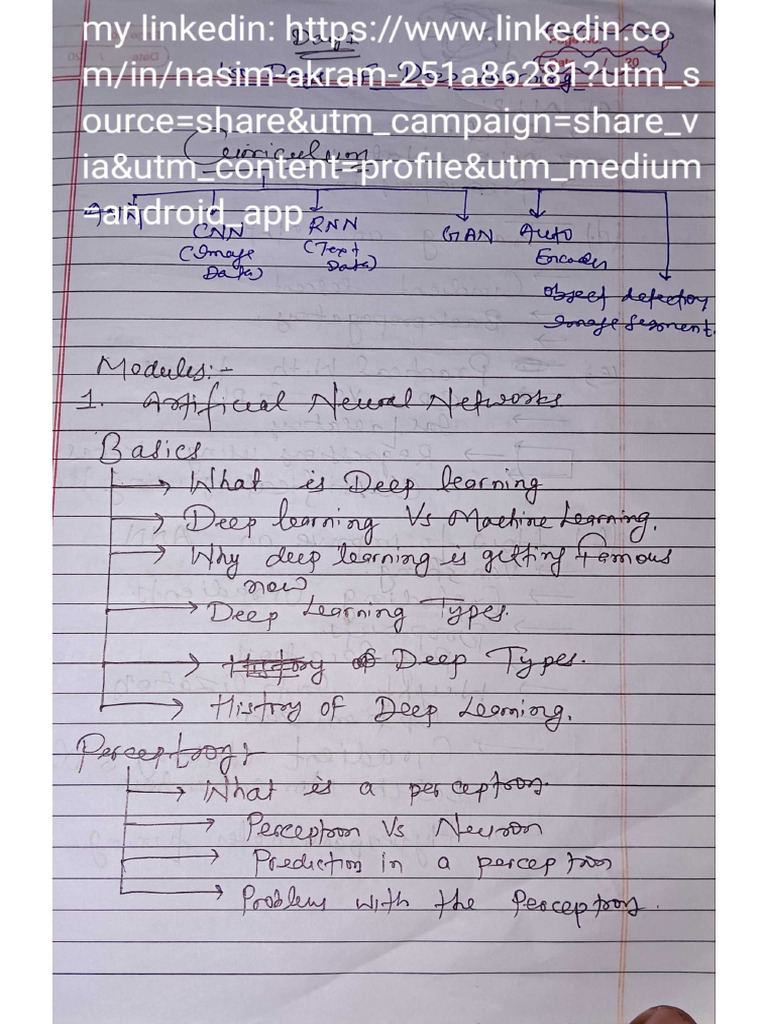 my linkedin: https://www.linkedin.co
m/in/nasim-akram-251a86281?utm_s
ource=share&utm_campaign=share_v
ia&utm_content=profile&utm_medium
=android_app
Day 1
Page No.
20
1st Day Deep learning
Curriculum
ANN
CNN
(Image
Data)
RNN
(Text
Data)
GAN
Auto
Encoder
Object detection
Image Segment.
Modules:-
1. Artificial Neural Networks
Basics
→ What is Deep learning
→ Deep learning Vs Machine Learning.
→ Why deep learning is getting famous
now
→ Deep Learning Types.
→ of Deep Types.
→ Histry of Deep Learning.
Perceptron:
→ What is a perceptron.
→ Perceptron Vs Neuron
→ Prediction in a perceptron
→ Problem with the Perceptron.